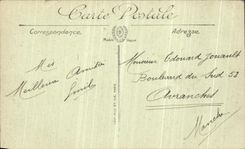 Carte Postale
Correspondance
Adresse
Mes
Meilleures Amitiés
Monsieur Edouard Jouault
Boulevard du Sud 53
Avranches
Manche